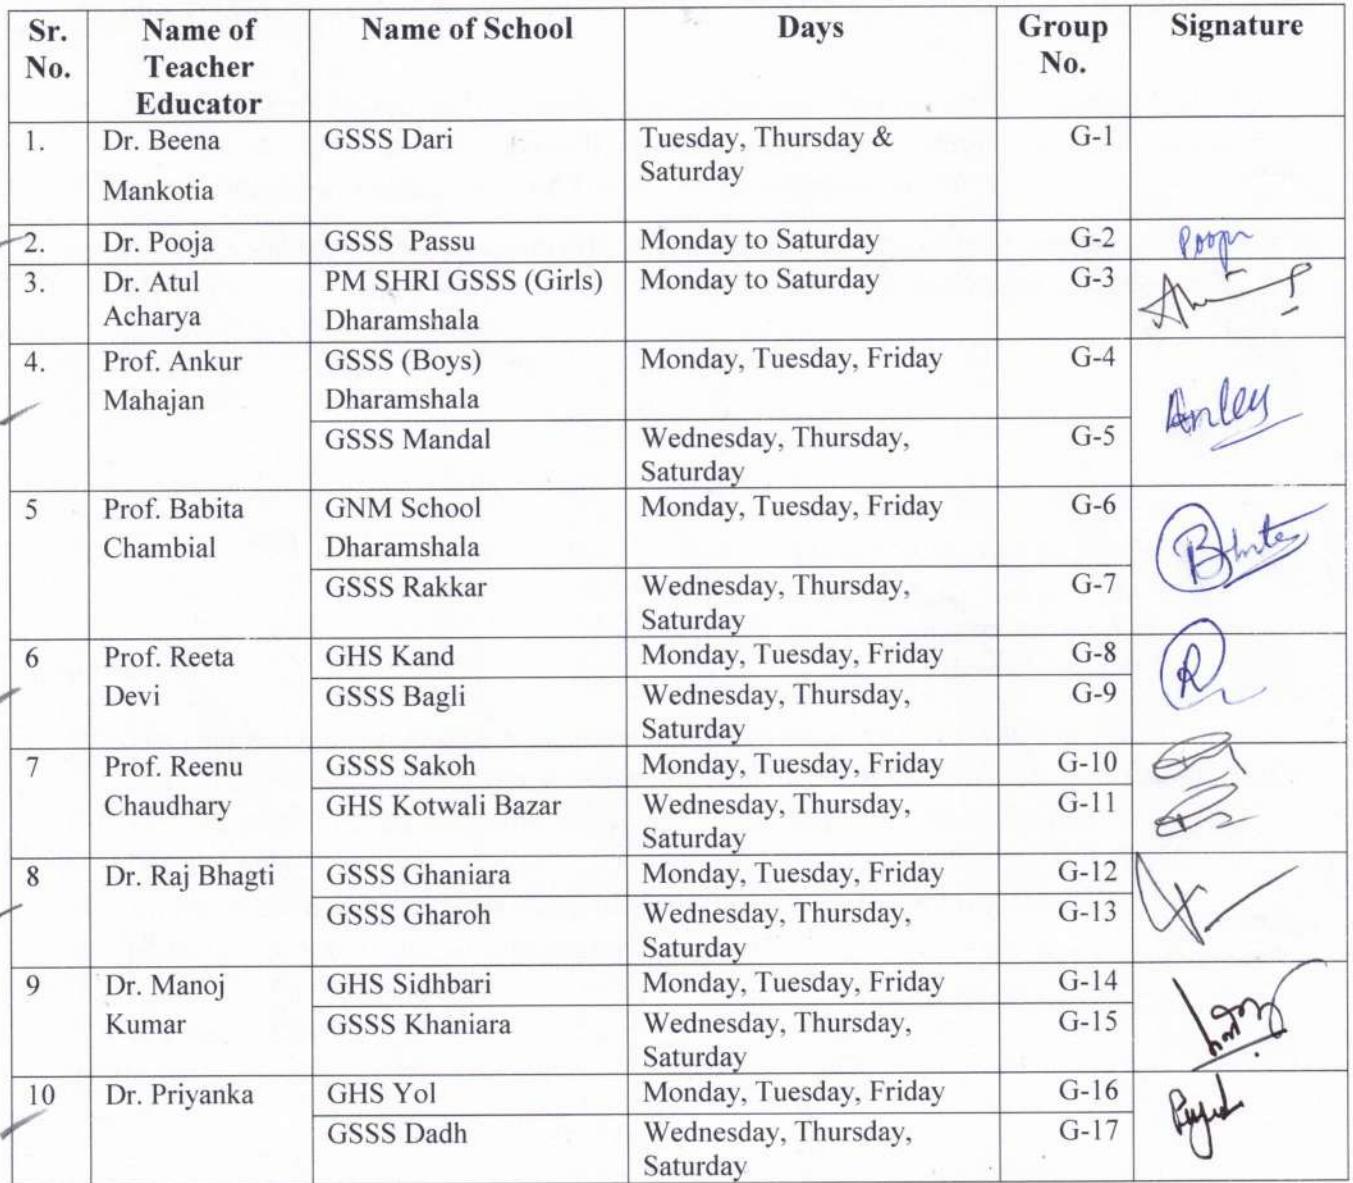 Sr. No. Name of Teacher Educator Name of School Days Group No. Signature
1. Dr. Beena Mankotia GSSS Dari Tuesday, Thursday & Saturday G-1
2. Dr. Pooja GSSS Passu Monday to Saturday G-2 Pooja
3. Dr. Atul Acharya PM SHRI GSSS (Girls) Dharamshala Monday to Saturday G-3
4. Prof. Ankur Mahajan GSSS (Boys) Dharamshala Monday, Tuesday, Friday G-4
GSSS Mandal Wednesday, Thursday, Saturday G-5
5 Prof. Babita Chambial GNM School Dharamshala Monday, Tuesday, Friday G-6
GSSS Rakkar Wednesday, Thursday, Saturday G-7
6 Prof. Reeta Devi GHS Kand Monday, Tuesday, Friday G-8
GSSS Bagli Wednesday, Thursday, Saturday G-9
7 Prof. Reenu Chaudhary GSSS Sakoh Monday, Tuesday, Friday G-10
GHS Kotwali Bazar Wednesday, Thursday, Saturday G-11
8 Dr. Raj Bhagti GSSS Ghaniara Monday, Tuesday, Friday G-12
GSSS Gharoh Wednesday, Thursday, Saturday G-13
9 Dr. Manoj Kumar GHS Sidhbari Monday, Tuesday, Friday G-14
GSSS Khaniara Wednesday, Thursday, Saturday G-15
10 Dr. Priyanka GHS Yol Monday, Tuesday, Friday G-16
GSSS Dadh Wednesday, Thursday, Saturday G-17